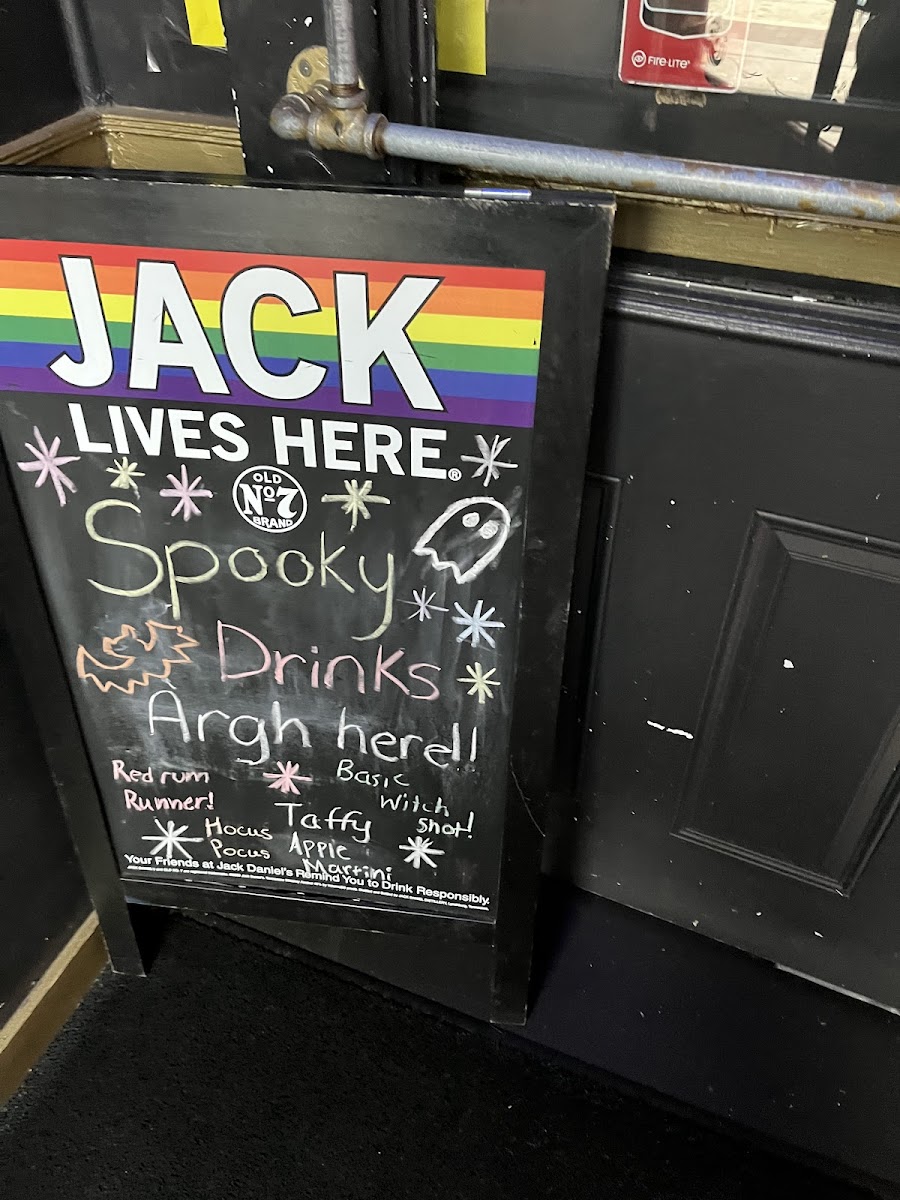 FIRE-LITE®
JACK
LIVES HERE®
OLD
Nº7
BRAND
Spooky
Drinks
Argh here!!
Red rum
Runner!
Basic
Witch
Shot!
Taffy
Apple
Martini
Hocus
Pocus
Your Friends at Jack Daniel's Remind You to Drink Responsibly.